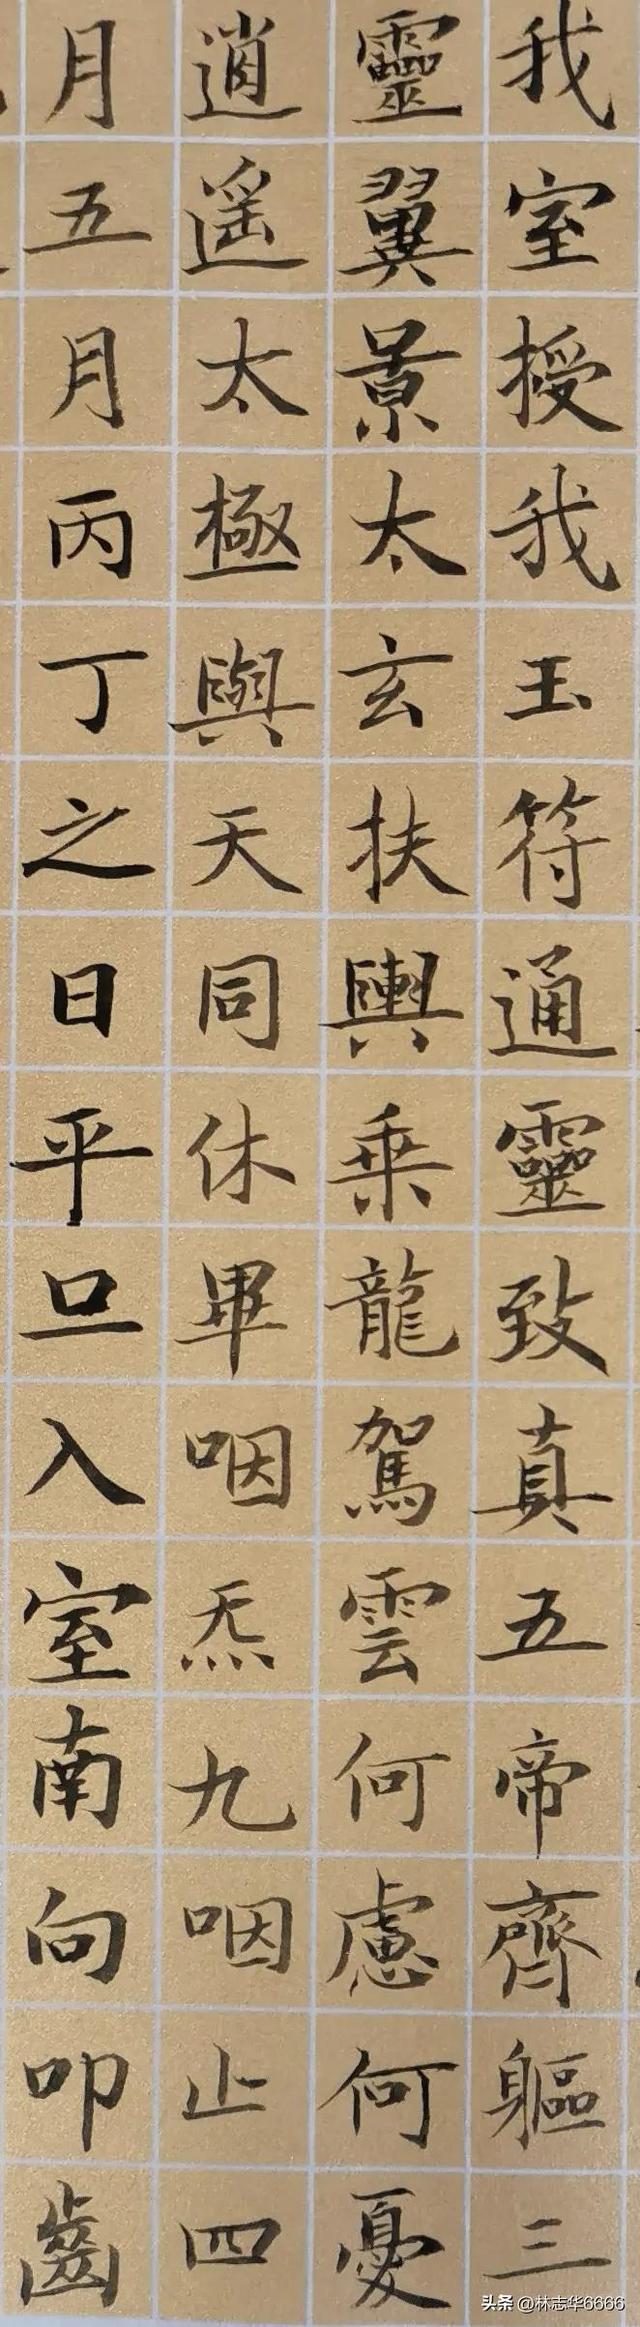 我室授我玉符通靈致真五帝齊軀三
靈翼景太玄扶輿乗龍駕雲何慮何憂
逍遥太極與天同休畢咽炁九咽止四
月五月丙丁之日平旦入室南向叩齒
头条 @林志华6666